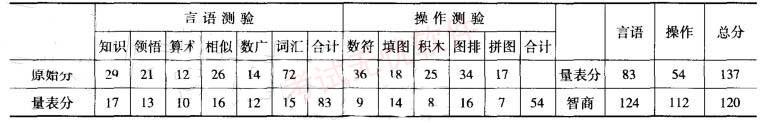 言语测验 操作测验 言语 操作 总分
知识 领悟 算术 相似 数广 词汇 合计 数符 填图 积木 图排 拼图 合计
原始分 29 21 12 26 14 72 36 18 25 34 17 量表分 83 54 137
量表分 17 13 10 16 12 15 83 9 14 8 16 7 54 智商 124 112 120